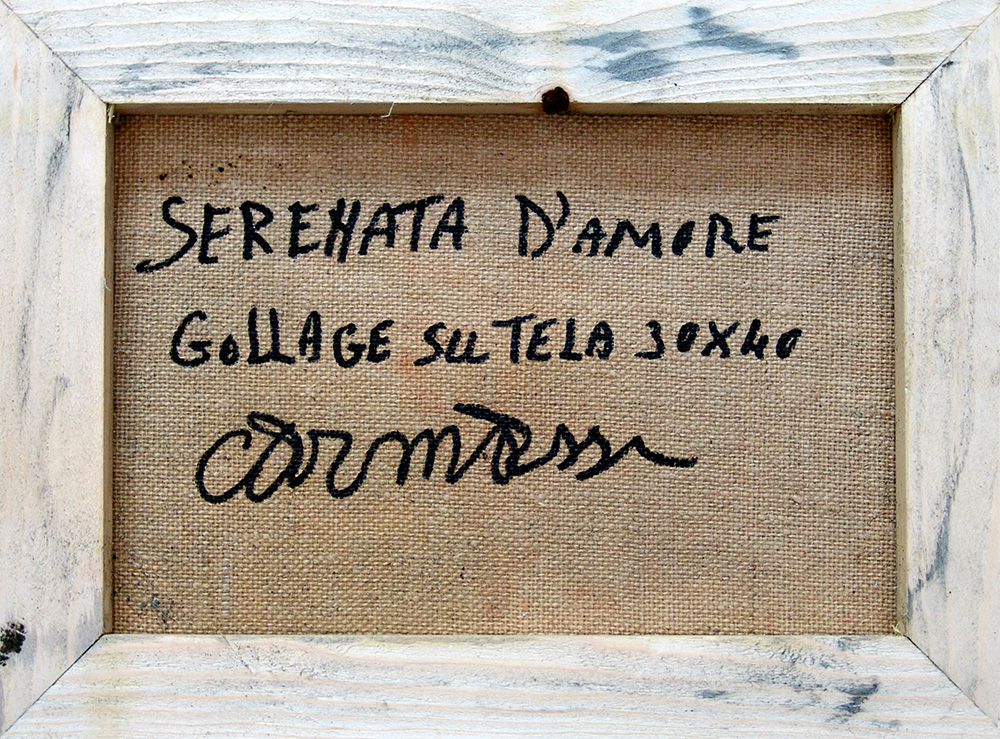 SERENATA D'AMORE
COLLAGE SU TELA 30X40
Carmassi